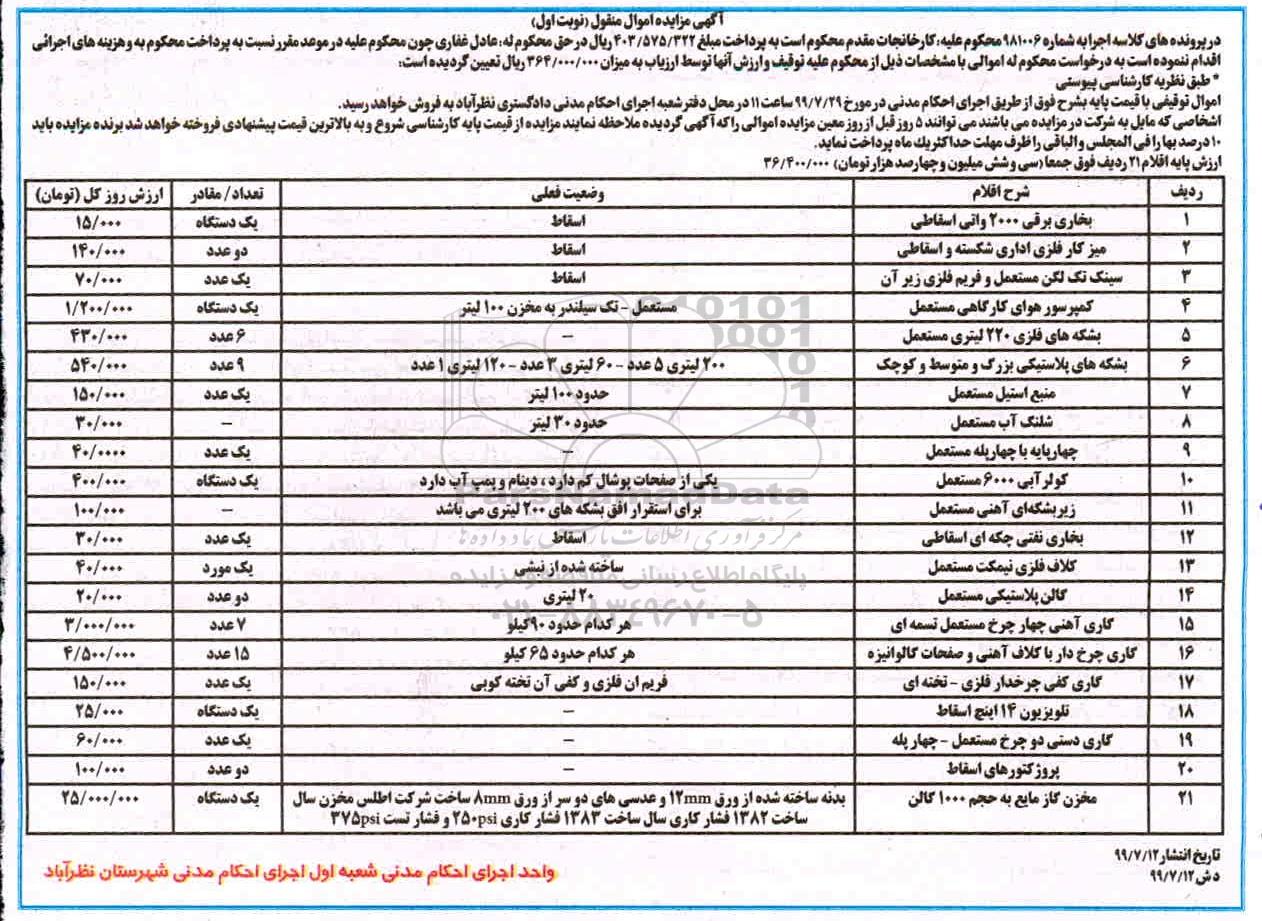 آگهی مزایده اموال منقول (نوبت اول)
در پرونده های کلاسه اجرا به شماره ۹۸۱۰۰۶ محکوم علیه: کارخانجات مقدم محکوم است به پرداخت مبلغ ۴۰۳/۵۷۵/۳۲۲ ریال در حق محکوم له: عادل غفاری چون محکوم علیه در موعد مقرر نسبت به پرداخت محکوم به و هزینه های اجرائی
اقدام ننموده است به درخواست محکوم له اموالی با مشخصات ذیل از محکوم علیه توقیف و ارزش آنها توسط ارزیاب به میزان ۳۶۴/۰۰۰/۰۰۰ ریال تعیین گردیده است:
* طبق نظریه کارشناسی پیوستی
اموال توقیفی با قیمت پایه بشرح فوق از طریق اجرای احکام مدنی در مورخ ۹۹/۷/۲۹ ساعت ۱۱ در محل دفتر شعبه اجرای احکام مدنی دادگستری نظرآباد به فروش خواهد رسید.
اشخاصی که مایل به شرکت در مزایده می باشند می توانند ۵ روز قبل از روز معین مزایده اموالی را که آگهی گردیده ملاحظه نمایند مزایده از قیمت پایه کارشناسی شروع و به بالاترین قیمت پیشنهادی فروخته خواهد شد برنده مزایده باید
۱۰ درصد بها را فی المجلس و الباقی را ظرف مهلت حداکثر یك ماه پرداخت نماید.
ارزش پایه اقلام ۲۱ ردیف فوق جمعا (سی و شش میلیون و چهارصد هزار تومان) ۳۶/۴۰۰/۰۰۰
ردیف شرح اقلام وضعیت فعلی تعداد / مقادر ارزش روز کل (تومان)
۱ بخاری برقی ۲۰۰۰ واتی اسقاطی اسقاط یک دستگاه ۱۵/۰۰۰
۲ میز کار فلزی اداری شکسته و اسقاطی اسقاط دو عدد ۱۴۰/۰۰۰
۳ سینک تک لگن مستعمل و فریم فلزی زیر آن اسقاط یک عدد ۷۰/۰۰۰
۴ کمپرسور هوای کارگاهی مستعمل مستعمل - تک سیلندر به مخزن ۱۰۰ لیتر یک دستگاه ۱/۲۰۰/۰۰۰
۵ بشکه های فلزی ۲۲۰ لیتری مستعمل – ۶ عدد ۴۳۰/۰۰۰
۶ بشکه های پلاستیکی بزرگ و متوسط و کوچک ۲۰۰ لیتری ۵ عدد - ۶۰ لیتری ۳ عدد - ۱۲۰ لیتری ۱ عدد ۹ عدد ۵۴۰/۰۰۰
۷ منبع استیل مستعمل حدود ۱۰۰ لیتر یک عدد ۱۵۰/۰۰۰
۸ شلنگ آب مستعمل حدود ۳۰ لیتر – ۳۰/۰۰۰
۹ چهارپایه با چهارپله مستعمل – یک عدد ۴۰/۰۰۰۰
۱۰ کولر آبی ۶۰۰۰ مستعمل یکی از صفحات پوشال کم دارد ، دینام و پمپ آب دارد یک دستگاه ۴۰۰/۰۰۰
۱۱ زیربشکه‌ای آهنی مستعمل برای استقرار افق بشکه های ۲۰۰ لیتری می باشد – ۱۰۰/۰۰۰
۱۲ بخاری نفتی چکه ای اسقاطی اسقاط یک عدد ۳۰/۰۰۰
۱۳ کلاف فلزی نیمکت مستعمل ساخته شده از نبشی یک مورد ۴۰/۰۰۰
۱۴ گالن پلاستیکی مستعمل ۲۰ لیتری دو عدد ۲۰/۰۰۰
۱۵ گاری آهنی چهار چرخ مستعمل تسمه ای هر کدام حدود ۹۰کیلو ۷ عدد ۳/۰۰۰/۰۰۰
۱۶ گاری چرخ دار با کلاف آهنی و صفحات گالوانیزه هر کدام حدود ۶۵ کیلو ۱۵ عدد ۴/۵۰۰/۰۰۰
۱۷ گاری کفی چرخدار فلزی - تخته ای فریم ان فلزی و کفی آن تخته کوبی یک عدد ۱۵۰/۰۰۰
۱۸ تلویزیون ۱۴ اینچ اسقاط – یک دستگاه ۲۵/۰۰۰
۱۹ گاری دستی دو چرخ مستعمل - چهار پله – یک عدد ۶۰/۰۰۰
۲۰ پروژکتورهای اسقاط – دو عدد ۱۰۰/۰۰۰
۲۱ مخزن گاز مایع به حجم ۱۰۰۰ گالن بدنه ساخته شده از ورق ۱۲mm و عدسی های دو سر از ورق ۸mm ساخت شرکت اطلس مخزن سال یک دستگاه ۲۵/۰۰۰/۰۰۰
ساخت ۱۳۸۲ فشار کاری سال ساخت ۱۳۸۳ فشار کاری ۲۵۰psi و فشار تست ۳۷۵psi
تاریخ انتشار ۹۹/۷/۱۲
دش ۹۹/۷/۱۲
واحد اجرای احکام مدنی شعبه اول اجرای احکام مدنی شهرستان نظرآباد
ParsNamadData
مرکز فرآوری اطلاعات پارس نماد داده ها
پایگاه اطلاع رسانی مناقصه و مزایده
۰۲۱-۸۸۳۴۹۶۷۰-۵